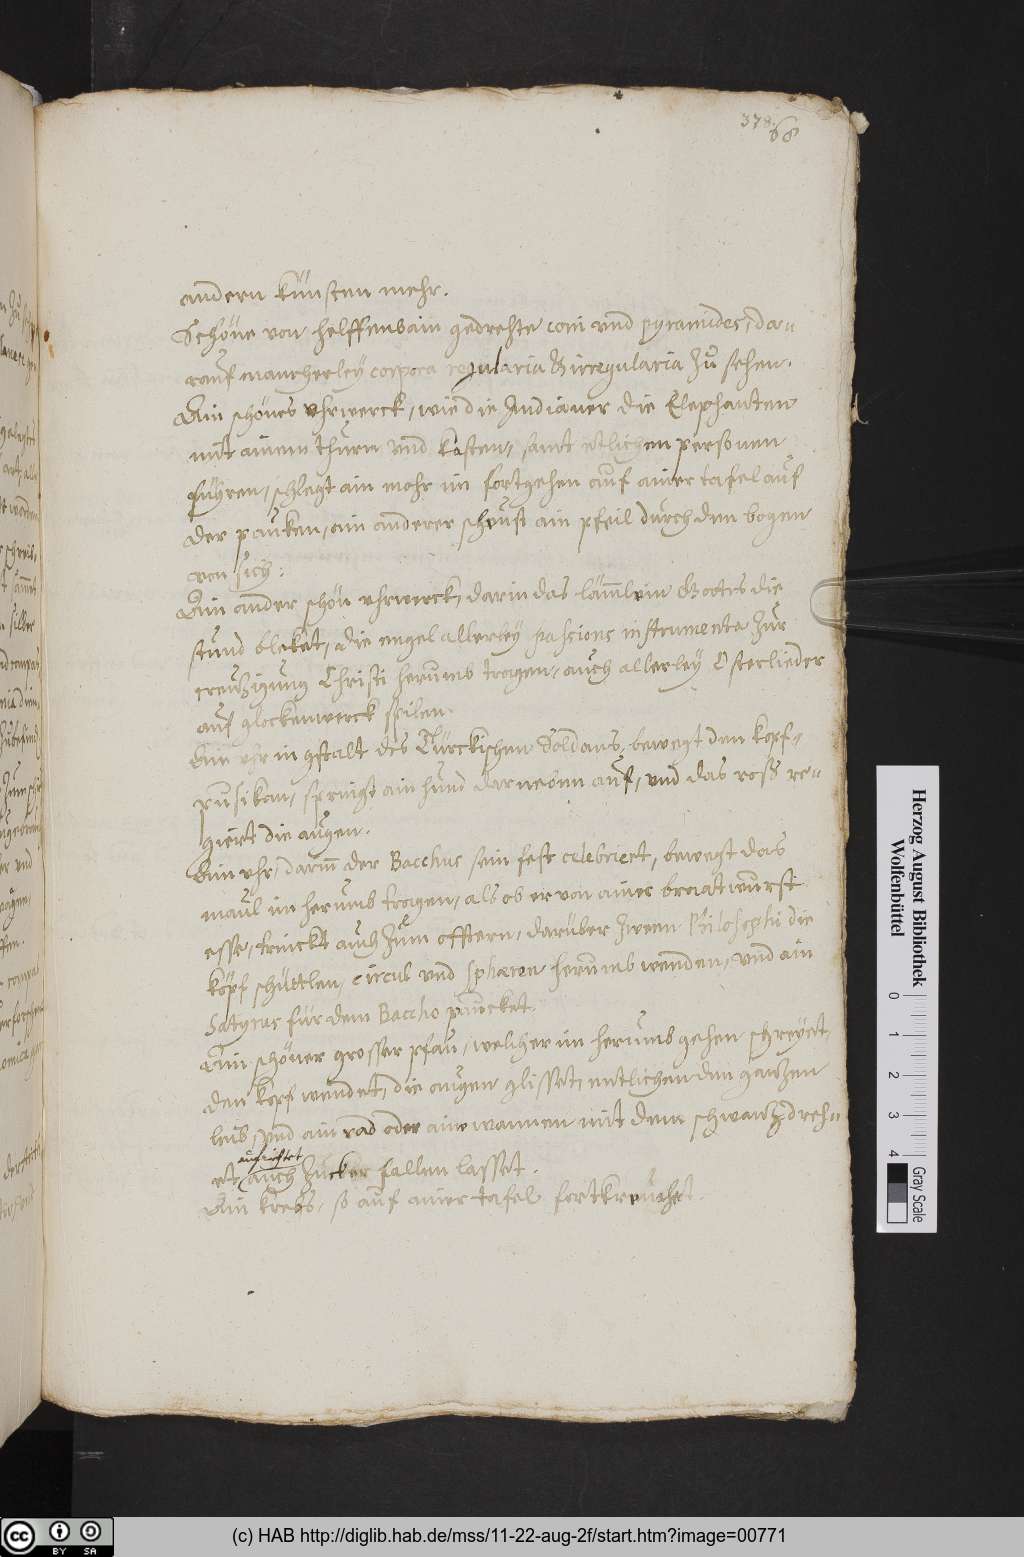 378.
68
andern künsten mehr.
Schöne von helffenbain gedrehte coni vnd pyramides, da-
rauf mancherley corpora regularia & irregularia zů sehen.
Ain schönes vhrwerck, wie die Indianer die Elephanten
mit ainem thurn vnd kasten, samt etlichen personen
füeren, schlegt ain mohr im fortgehen auf ainer tafel auf
der pauken, ain anderer scheust ain pfeil durch den bogen
von sich.
Ain ander schön vhrwerck, darin das lämlein Gottes die
stund bleket, die engel allerley passions instrumenta zur
creuzigung Christi herumb tragen, auch allerley Osterlieder
auf glockenwerck spilen.
Ain vhr in gstalt des Türckischen Soldans, bewegt den kopf,
pusikan, springt ain hund darneben auf, vnd das ross re-
giert die augen.
Ain vhr, darin der Bacchus sein fest celebriert, bewegt das
maul im herumb tragen, als ob er von ainer braatwurst
esse, trinckt auch zum offtern, darüber zween Philosophi die
köpf schüttlen, circul vnd sphaeren herumb wenden, vnd ain
Satyrus für dem Baccho paucket.
Ain schöner grosser pfau, welcher im herumb gehen schreyet,
den kopf wendet, die augen glisset, entlichen den ganzen
leib, vnd ain rad oder aine wannen mit dem schwanz dreh-
aufrichtet
et, auch zucker fallen lasset.
Ain krebs, so auf ainer tafel fortkreucht.
Herzog August Bibliothek
Wolfenbüttel
0 1 2 3 4
Gray Scale
cc BY SA
(c) HAB http://diglib.hab.de/mss/11-22-aug-2f/start.htm?image=00771